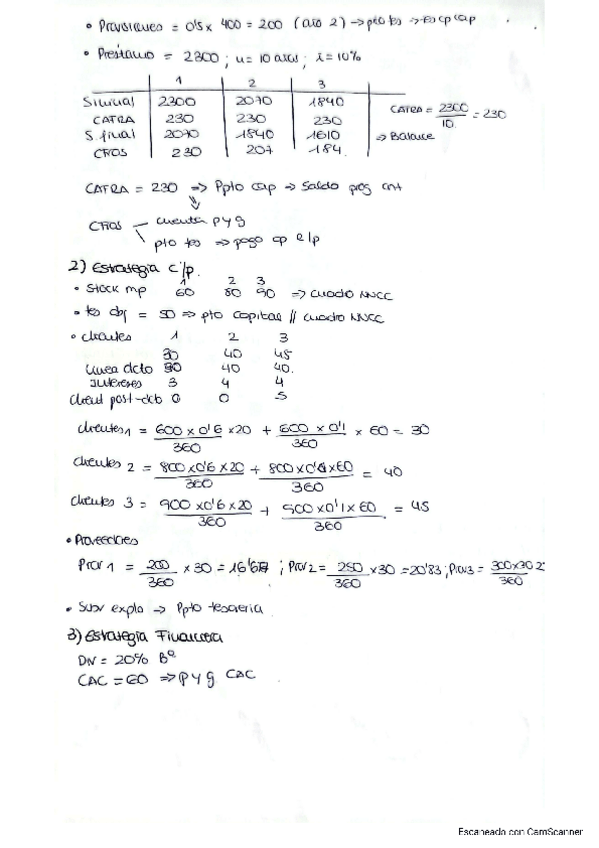 • Provisiones = 0'5 x 400 = 200 (año 2) → pto tes → tes cp cap
• Préstamo = 2300 ; n = 10 años ; i = 10%
1 2 3
S inicial 2300 2070 1840
CATRA 230 230 230
S. final 2070 1840 1610
CFROS 230 207 184
CATRA = 2300/10 = 230
⇒ Balance
CATRA = 230 ⇒ Ppto cap → Saldo
CFROS — cuenta PYG
pto tes ⇒ pago cp e l/p
2) Estrategia c/p.
1 2 3
• Stock mp 60 80 90 ⇒ cuadro NNCC
• tes obj = 50 ⇒ pto capital // cuadro NNCC
• clientes 1 2 3
30 40 45
Linea dcto 30 40 40.
Intereses 3 4 4
client post-dcto 0 0 5
clientes 1 = 600 x 0'6 x 20 / 360 + 600 x 0'1 / 360 x 60 = 30
clientes 2 = 800 x 0'6 x 20 / 360 + 800 x 0'1 x 60 / 360 = 40
clientes 3 = 900 x 0'6 x 20 / 360 + 900 x 0'1 x 60 / 360 = 45
• Proveedores
Prov 1 = 200/360 x 30 = 16'67 ; Prov 2 = 250/360 x 30 = 20'83 ; Prov 3 = 300x30/360
• Subv explo → Ppto tesorería
3) Estrategia Financiera
DN = 20% Bº
CAC = 60 ⇒ PYG CAC
Escaneado con CamScanner